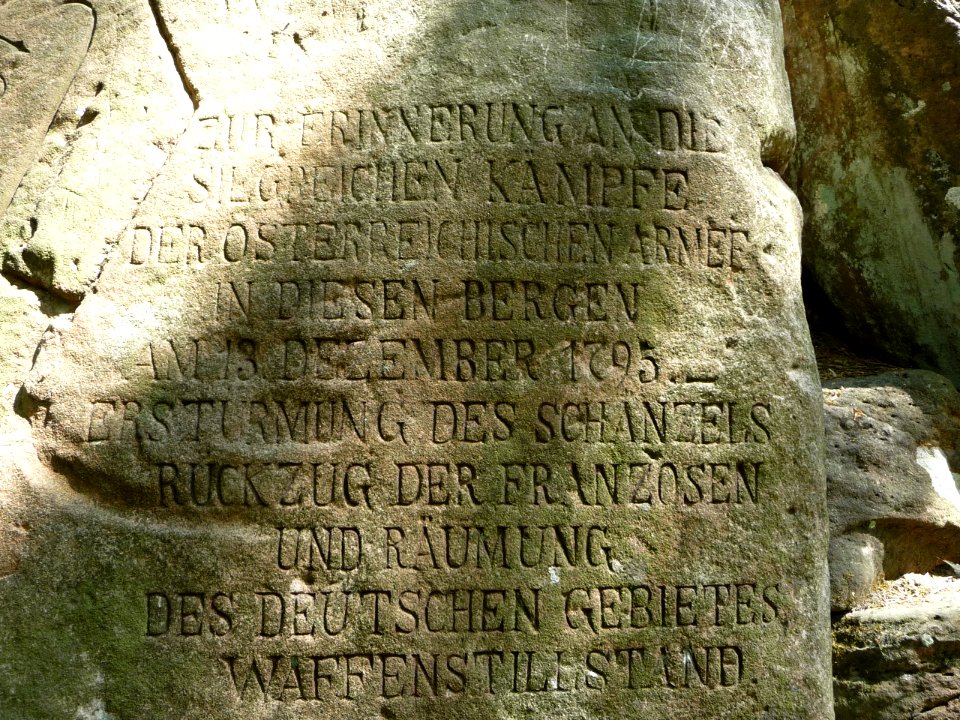 ZUR ERINNERUNG AN DIE
SIEGREICHEN KÄMPFE
DER ÖSTERREICHISCHEN ARMEE
IN DIESEN BERGEN
AM 13 DEZEMBER 1795. _
ERSTÜRMUNG DES SCHÄNZELS
RÜCKZUG DER FRANZOSEN
UND RÄUMUNG
DES DEUTSCHEN GEBIETES,
WAFFENSTILLSTAND.